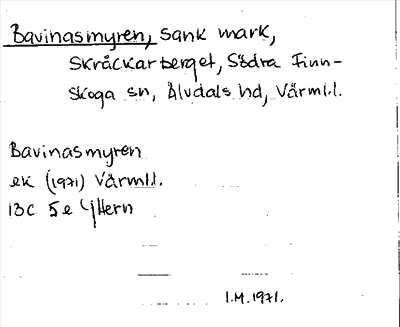 Bavinasmyren, sank mark,
Skråckarberget, Södra Finn-
skoga sn, Älvdals hd, Värml.l.
Bavinasmyren
ek (1971) Värml.l.
13C 5e
I.M. 1971.